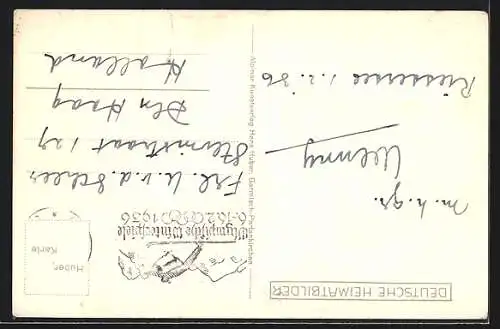 DEUTSCHE HEIMATBILDER
m. h. gr.
Riessersee 1.2.36
Alpiner Kunstverlag Hans Huber, Garmisch-Partenkirchen
Huber-
Karte
Olympische Winterspiele
6.-16.2. 1936
Frl. U. v. d. Scheer
Den Haag
Holland